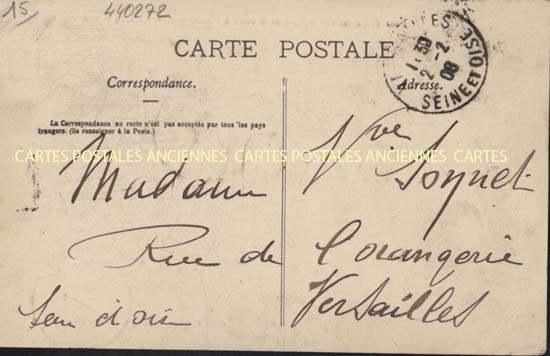 15
440272
CARTE POSTALE
Correspondance.
Adresse.
1130
2-2
08
SEINE ET OISE
La Correspondance au recto n'est pas acceptée par tous les pays
trangers. (Se renseigner à la Poste.)
CARTES POSTALES ANCIENNES CARTES POSTALES ANCIENNES CARTES
Madame Vve
Rue de l'orangerie
Versailles
Seine et oise